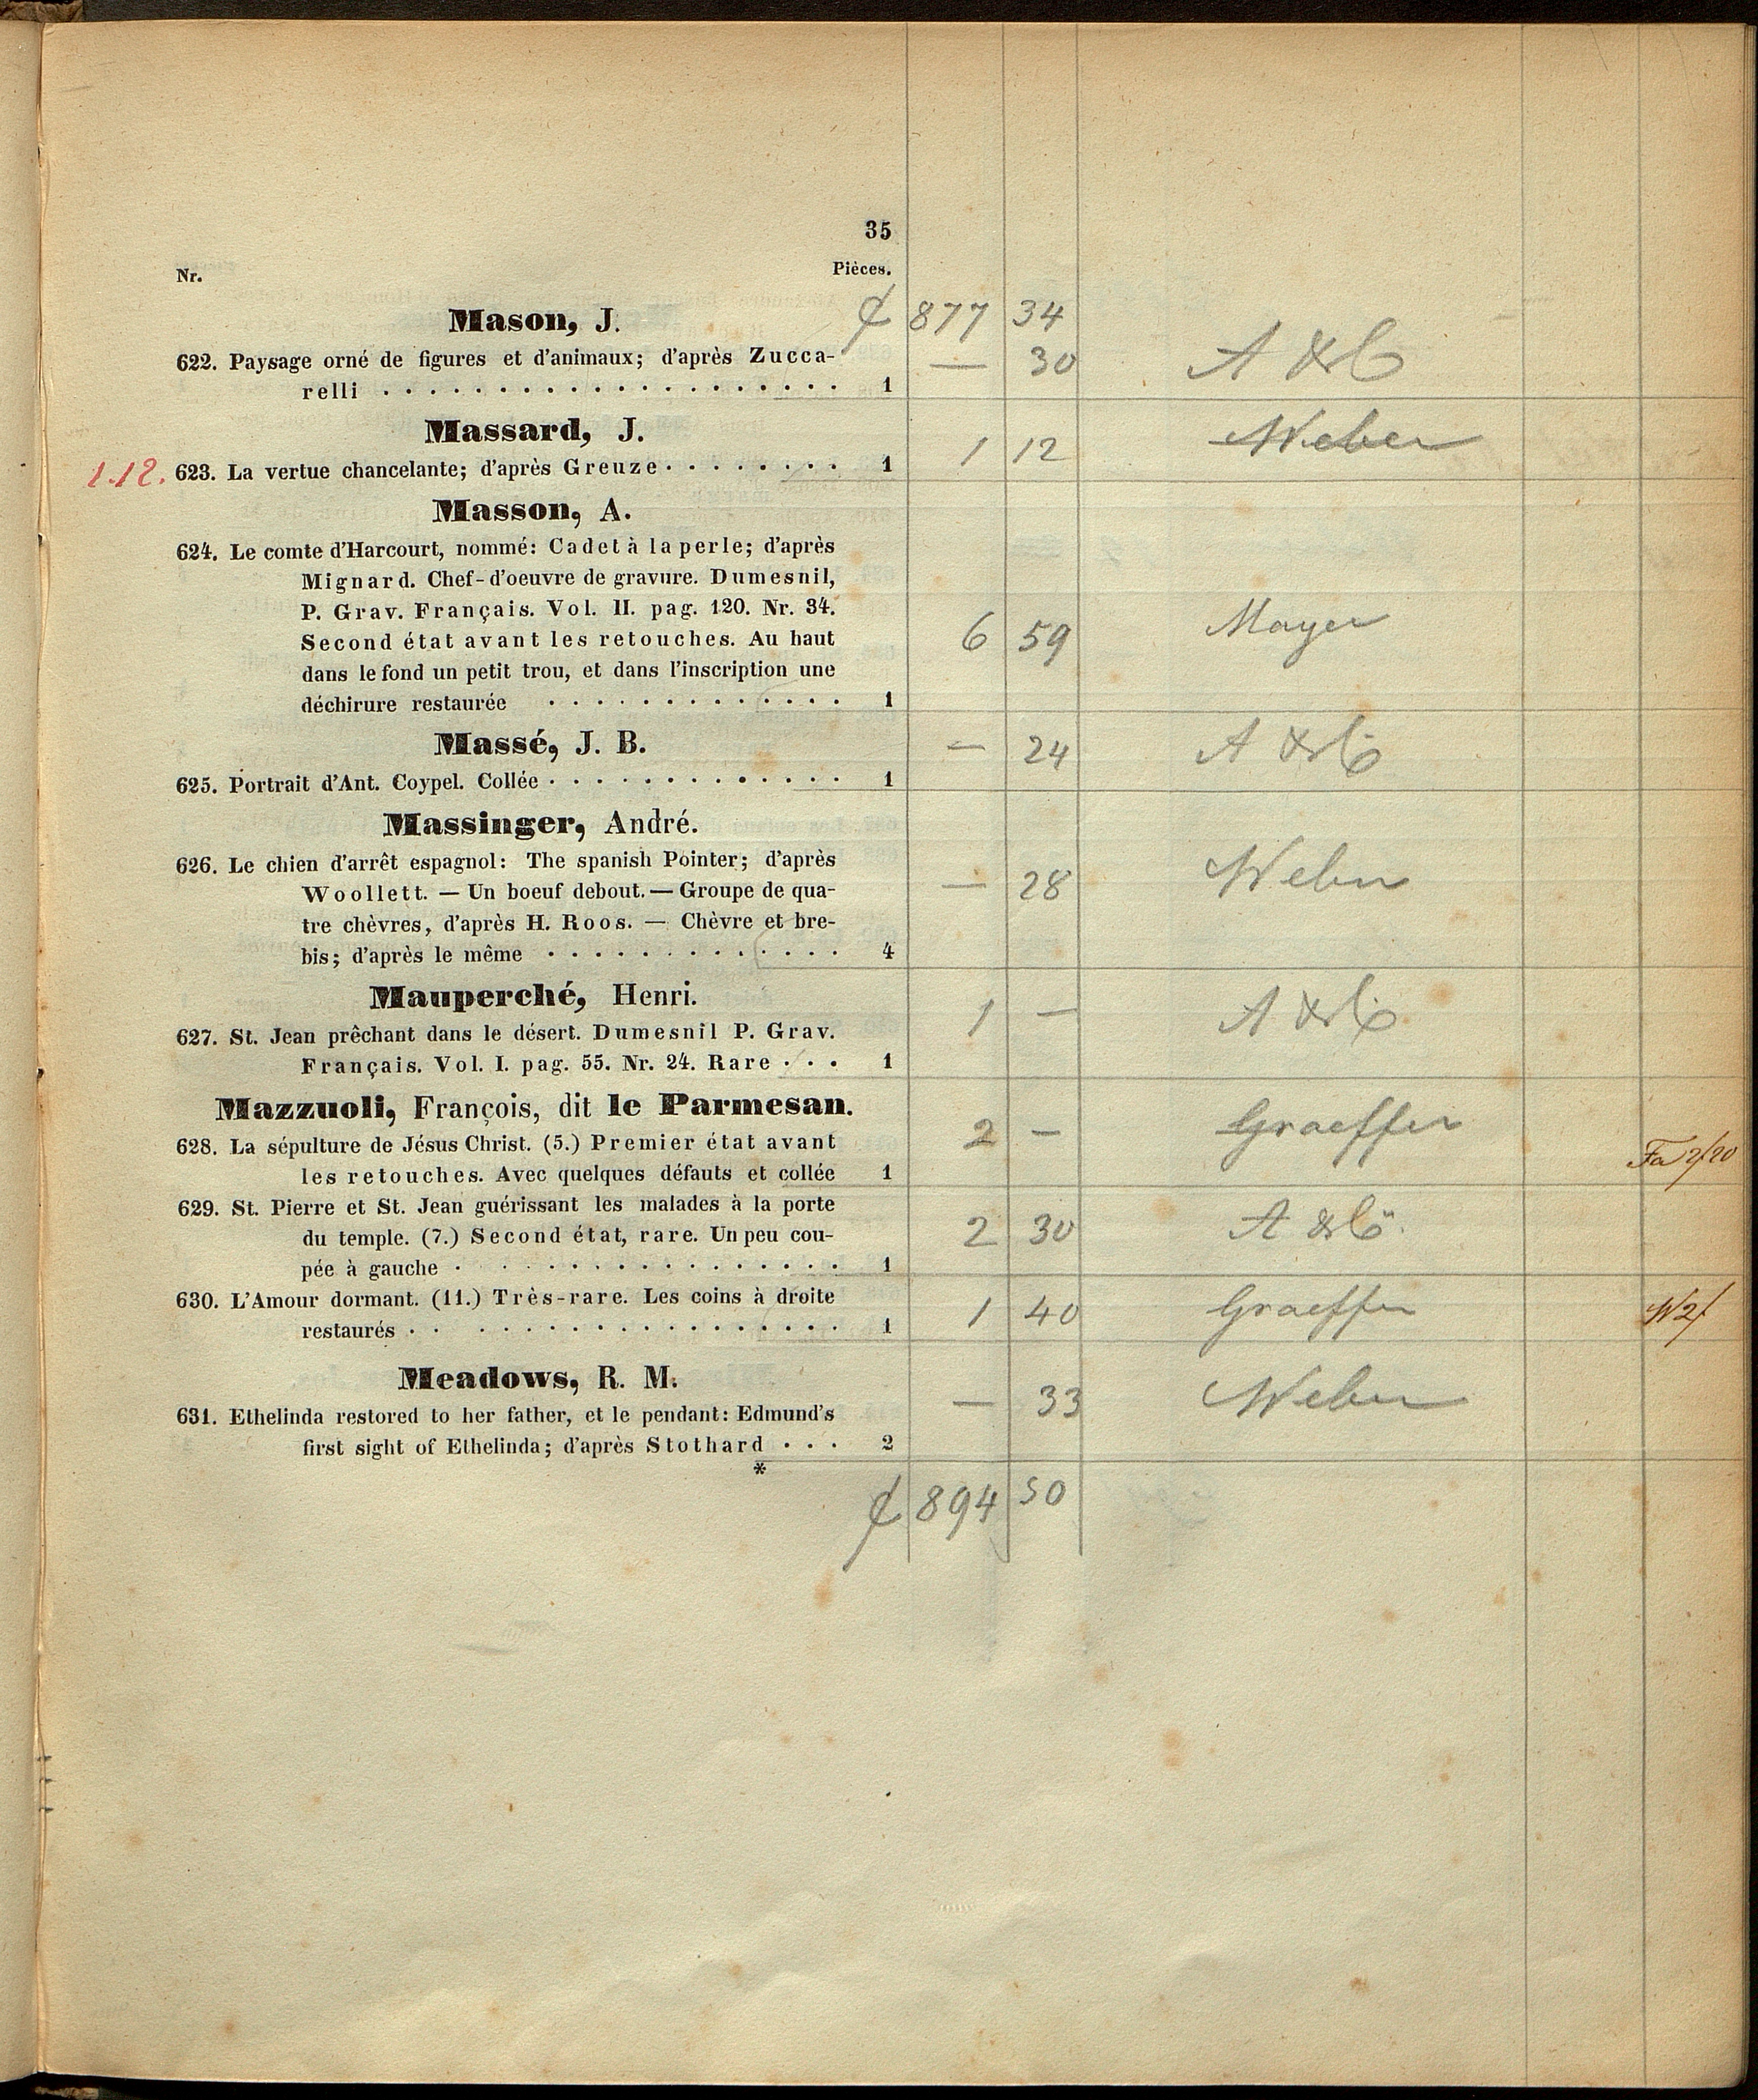 35
Nr. Pièces.
Mason, J. 877 34
622. Paysage orné de figures et d'animaux; d'après Zucca- — 30 A & Co
relli . . . . . . . . . . . . . . . . . . . . 1
Massard, J.
1.12. 623. La vertue chancelante; d'après Greuze . . . . . . . . 1 1 12 Weber
Masson, A.
624. Le comte d'Harcourt, nommé: Cadet à la perle; d'après
Mignard. Chef-d'oeuvre de gravure. Dumesnil,
P. Grav. Français. Vol. II. pag. 120. Nr. 34.
Second état avant les retouches. Au haut 6 59 Mayer
dans le fond un petit trou, et dans l'inscription une
déchirure restaurée . . . . . . . . . . . . . 1
Massé, J. B. — 24 A & Co
625. Portrait d'Ant. Coypel. Collée . . . . . . . . . . . . . 1
Massinger, André.
626. Le chien d'arrêt espagnol: The spanish Pointer; d'après
Woollett. — Un boeuf debout. — Groupe de qua- — 28 Weber
tre chèvres, d'après H. Roos. — Chèvre et bre-
bis; d'après le même . . . . . . . . . . . . . 4
Mauperché, Henri. 1 — A & Co
627. St. Jean prêchant dans le désert. Dumesnil P. Grav.
Français. Vol. I. pag. 55. Nr. 24. Rare . . . 1
Mazzuoli, François, dit le Parmesan.
628. La sépulture de Jésus Christ. (5.) Premier état avant 2 — Graeffer
les retouches. Avec quelques défauts et collée 1 Fa 2/20
629. St. Pierre et St. Jean guérissant les malades à la porte
du temple. (7.) Second état, rare. Un peu cou- 2 30 A & Co
pée à gauche . . . . . . . . . . . . . . . . 1
630. L'Amour dormant. (11.) Très-rare. Les coins à droite 1 40 Graeffer W2/
restaurés . . . . . . . . . . . . . . . . . . 1
Meadows, R. M.
631. Ethelinda restored to her father, et le pendant: Edmund's — 33 Weber
first sight of Ethelinda; d'après Stothard . . . 2
*
894 50